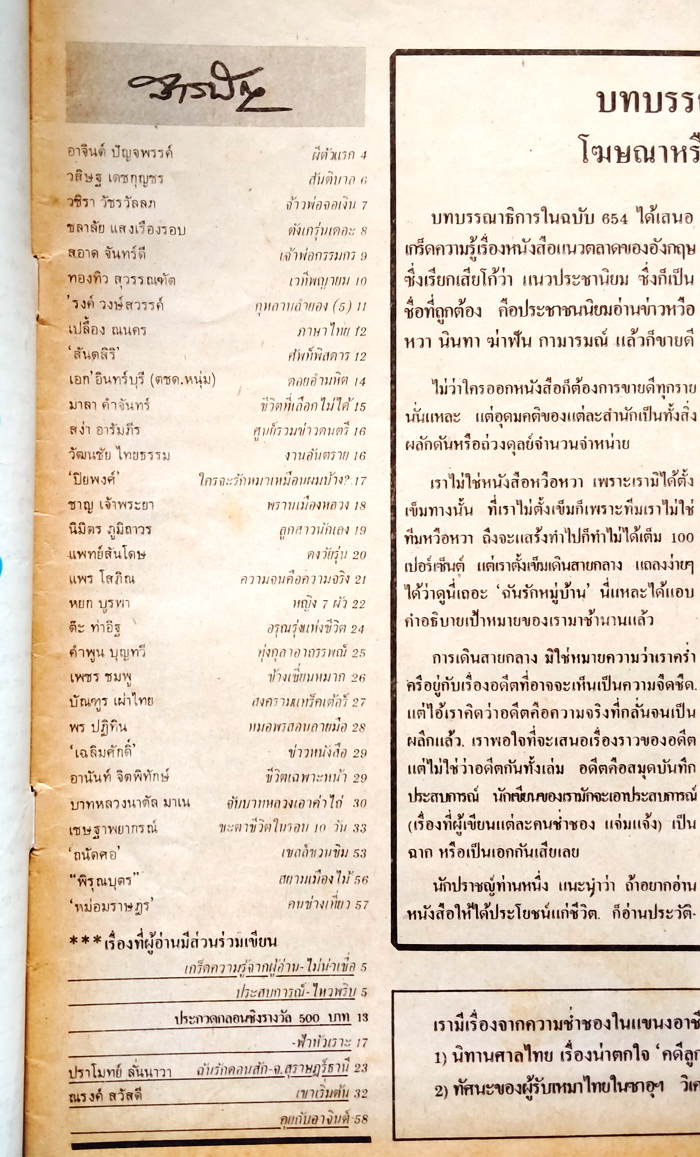 สารบัญ
อาจินต์ ปัญจพรรค์ ผีตัวแรก 4
วสิษฐ เดชกุญชร สันติบาล 6
วชิรา วัชรวัลลภ จ้าวพ่อจอเงิน 7
ชลาลัย แสงเรืองรอบ ดังเกรุ่นเดอะ 8
สอาด จันทร์ดี เจ้าพ่อกรรมกร 9
ทองทิว สุวรรณทัต เวทีพญายม 10
'รงค์ วงษ์สวรรค์ กุหลาบลำยอง (5) 11
เปลื้อง ณนคร ภาษาไทย 12
'สันตสิริ' ศัพท์พิสดาร 12
เอก'อินทร์บุรี (ตชด.หนุ่ม) ดอยอำมหิต 14
มาลา คำจันทร์ ชีวิตที่เลือกไม่ได้ 15
สง่า อารัมภีร ศูนย์รวมข่าวดนตรี 16
วัฒนชัย ไทยธรรม งานอันตราย 16
'ปิยพงศ์' ใครจะรักหมาเหมือนผมบ้าง? 17
ชาญ เจ้าพระยา พรานเมืองหลวง 18
นิมิตร ภูมิถาวร ลูกสาวนักเลง 19
แพทย์สันโดษ ดงวัยรุ่น 20
แพร โสภิณ ความจนคือความจริง 21
หยก บูรพา หญิง 7 ผัว 22
ต๊ะ ท่าอิฐ อรุณรุ่งแห่งชีวิต 24
คำพูน บุญทวี ทุ่งกุลาอาถรรพณ์ 25
เพชร ชมพู ช้างเขี่ยนหมาก 26
บัณฑูร เผ่าไทย สงครามแทร็คเต้อร์ 27
พร ปฏิทิน หมอพรสอนลายมือ 28
'เฉลิมศักดิ์' ข่าวหนังสือ 29
อานันท์ จิตพิทักษ์ ชีวิตเฉพาะหน้า 29
บาทหลวงนาตัล มาเน จับบาทหลวงเอาค่าไถ่ 30
เชษฐาพยากรณ์ ชะตาชีวิตในรอบ 10 วัน 33
'ถนัดศอ' เชลล์ชวนชิม 53
"พิรุณบุตร" สยามเมืองไม้ 56
'หม่อมราษฎร' คนช่างเที่ยว 57
***เรื่องที่ผู้อ่านมีส่วนร่วมเขียน
เกร็ดความรู้จากผู้อ่าน-ไม่น่าเชื่อ 5
ประสบการณ์-ไหวพริบ 5
ประกวดกลอนชิงรางวัล 500 บาท 13
-ฟ้าหัวเราะ 17
ปราโมทย์ ลั่นนาวา ฉันรักดอนสัก-จ.สุราษฎร์ธานี 23
ณรงค์ สวัสดี เขาเริ่มต้น 32
คุยกับอาจินต์ 58
บทบรร
โฆษณาหรื
บทบรรณาธิการในฉบับ 654 ได้เสนอ
เกร็ดความรู้เรื่องหนังสือแนวตลาดของอังกฤษ
ซึ่งเรียกเสียโก้ว่า แนวประชานิยม ซึ่งก็เป็น
ชื่อที่ถูกต้อง คือประชาชนนิยมอ่านข่าวหวือ
หวา นินทา ฆ่าฟัน กามารมณ์ แล้วก็ขายดี
ไม่ว่าใครออกหนังสือก็ต้องการขายดีทุกราย
นั่นแหละ แต่อุดมคติของแต่ละสำนักเป็นทั้งสิ่ง
ผลักดันหรือถ่วงดุลย์จำนวนจำหน่าย
เราไม่ใช่หนังสือหวือหวา เพราะเรามิได้ตั้ง
เข็มทางนั้น ที่เราไม่ตั้งเข็มก็เพราะทีมเราไม่ใช่
ทีมหวือหวา ถึงจะแสร้งทำไปก็ทำไม่ได้เต็ม 100
เปอร์เซ็นต์ แต่เราตั้งเข็มเดินสายกลาง แถลงง่ายๆ
ได้ว่าดูนี่เถอะ 'ฉันรักหมู่บ้าน' นี่แหละได้แอบ
คำอธิบายเป้าหมายของเรามาช้านานแล้ว
การเดินสายกลาง มิใช่หมายความว่าเราคร่ำ
ครือยู่กับเรื่องอดีตที่อาจจะเห็นเป็นความจืดชืด.
แต่ไอ้เราคิดว่าอดีตคือความจริงที่กลั่นจนเป็น
ผลึกแล้ว. เราพอใจที่จะเสนอเรื่องราวของอดีต
แต่ไม่ใช่ว่าอดีตกันทั้งเล่ม อดีตคือสมุดบันทึก
ประสบการณ์ นักเขียนของเรามักจะเอาประสบการณ์
(เรื่องที่ผู้เขียนแต่ละคนช่ำชอง แจ่มแจ้ง) เป็น
ฉาก หรือเป็นเอกกันเสียเลย
นักปราชญ์ท่านหนึ่ง แนะนำว่า ถ้าอยากอ่าน
หนังสือให้ได้ประโยชน์แก่ชีวิต. ก็อ่านประวัติ-
เรามีเรื่องจากความช่ำชองในแขนงอาชี
1) นิทานศาลไทย เรื่องน่าตกใจ 'คดีลูก
2) ทัศนะของผู้รับเหมาไทยในซาอุฯ วิเค